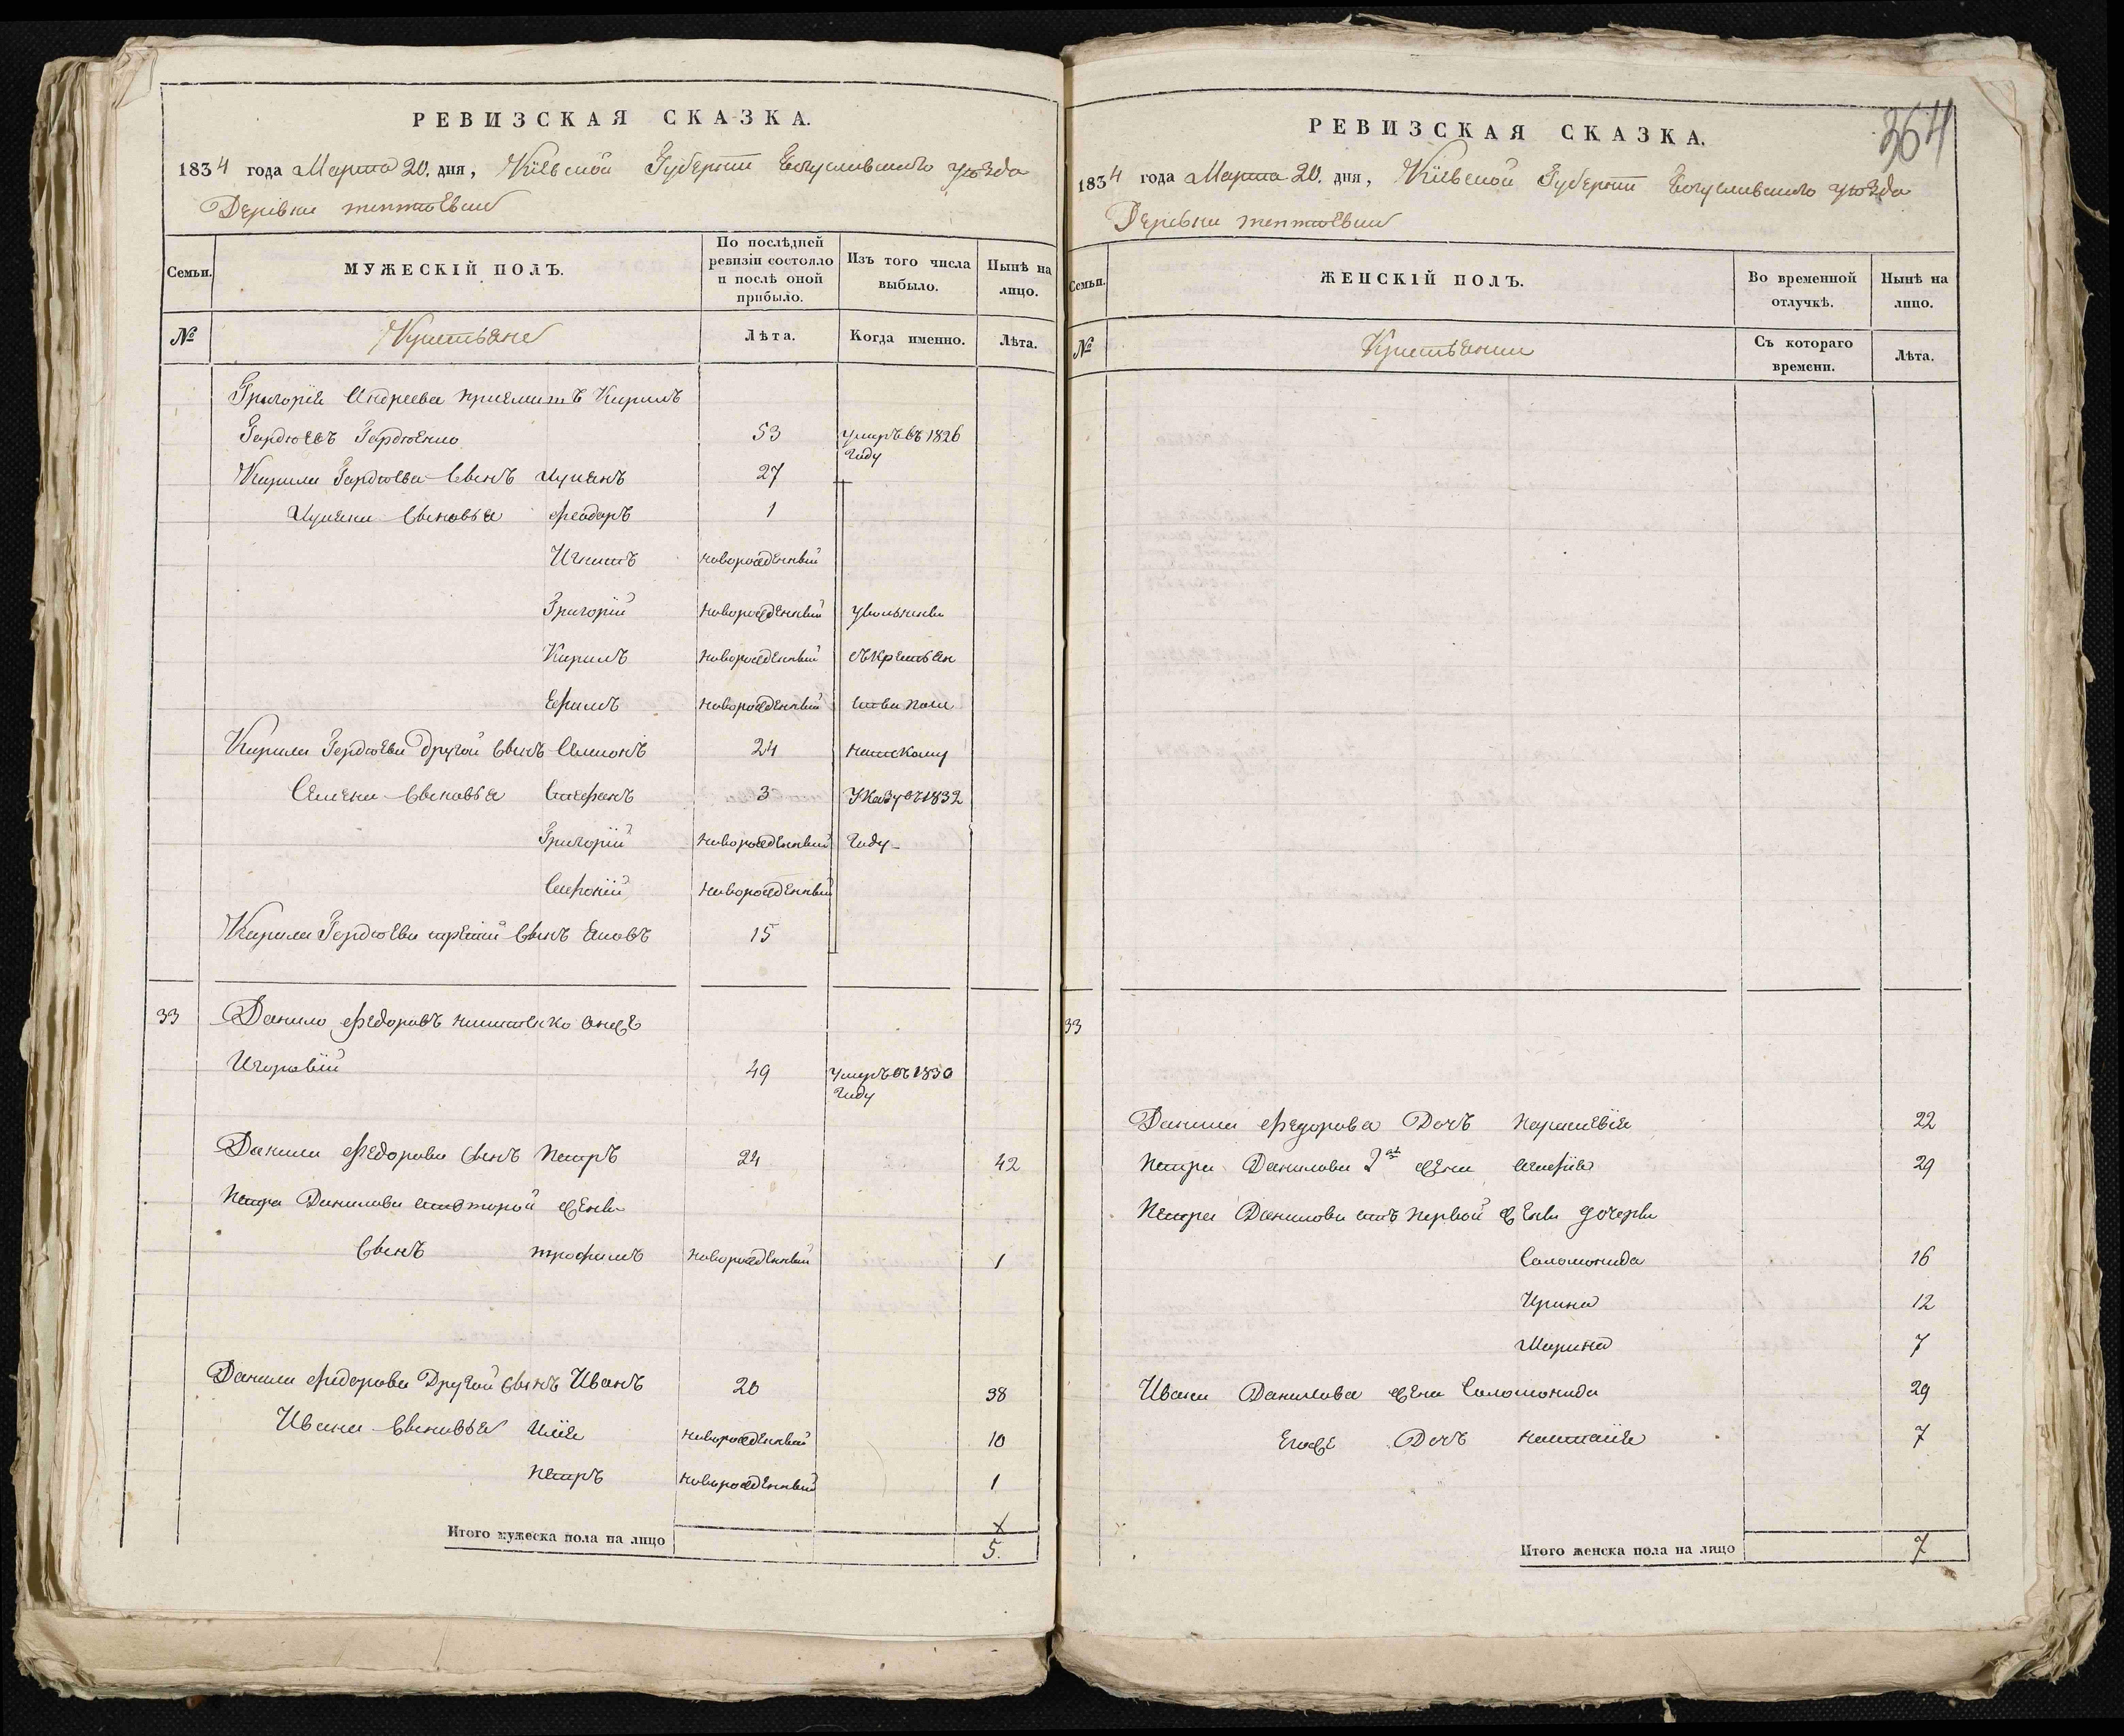 РЕВИЗСКАЯ СКАЗКА.
1834 года Марта 20. дня, Кіевской Губерніи Богуславского уѣзда
Деревни
Семьи.
МУЖЕСКІЙ ПОЛЪ.
По послѣдней ревизіи состояло и послѣ оной прибыло.
Изъ того числа выбыло.
Нынѣ на лицо.
№
Крестьяне
Лѣта.
Когда именно.
Лѣта.
Григорія Андреева приемишъ Кирилъ
Гордѣевъ Гордѣенко 53 умеръ въ 1826 году
Кирила Гордѣева Сынъ Лукъянъ 27
Лукяна Сыновья Феодоръ 1
Игнатъ новорожденный
Григорій новорожденный уволнены
Кирилъ новорожденный съ крестьян
Ефимъ новорожденный
Кирила Гордѣева другой Сынъ Семионъ 24
Семена Сыновья Стефанъ 3 Указу въ 1832
Григорій новорожденный году
Сафроній новорожденный
Кирила Гордѣева третій Сынъ Яковъ 15
33 Данило Федоровъ онже
49 умеръ въ 1830 году
Данила Федорова Сынъ Петръ 24 42
Петра Данилова отъ второй жены
Сынъ Трофимъ новорожденный 1
Данила Федорова Другой Сынъ Иванъ 20 38
Ивана Сыновья Илія новорожденный 10
Петръ новорожденный 1
х
Итого мужеска пола на лицо 5.
364
РЕВИЗСКАЯ СКАЗКА.
1834 года Марта 20. дня, Кіевской Губерніи Богуславского уѣзда
Деревни
Семьи.
ЖЕНСКІЙ ПОЛЪ.
Во временной отлучкѣ.
Нынѣ на лицо.
№
Крестьянки
Съ котораго времени.
Лѣта.
33
Данила Федорова Дочь Параскевія 22
Петра Данилова 2ая жена Агафія 29
Петра Данилова отъ первой жены дочери
Соломонида 16
Ирина 12
Марина 7
Ивана Данилова жена Соломонида 29
Егоже Дочь Наталія 7
Итого женска пола на лицо 7